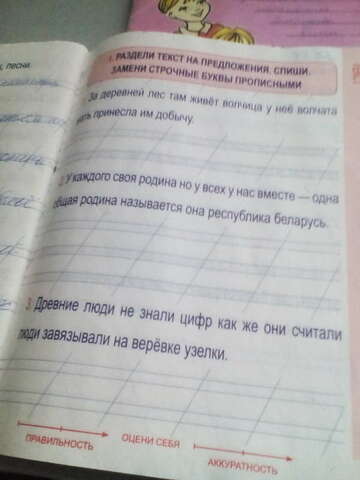 песни.
1. РАЗДЕЛИ ТЕКСТ НА ПРЕДЛОЖЕНИЯ. СПИШИ.
ЗАМЕНИ СТРОЧНЫЕ БУКВЫ ПРОПИСНЫМИ
За деревней лес там живёт волчица у неё волчата
мать принесла им добычу.
2. У каждого своя родина но у всех у нас вместе — одна
общая родина называется она республика беларусь.
3. Древние люди не знали цифр как же они считали
люди завязывали на верёвке узелки.
ПРАВИЛЬНОСТЬ
ОЦЕНИ СЕБЯ
АККУРАТНОСТЬ